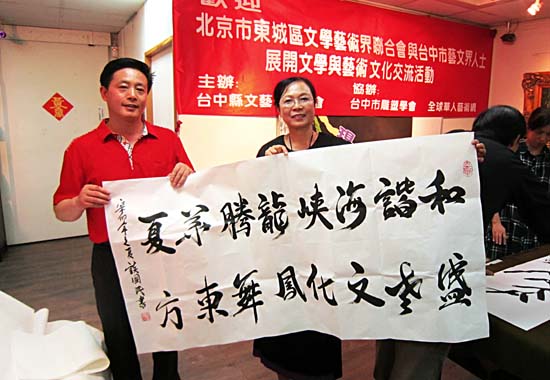 歡迎
北京市東城區文學藝術界聯合會與台中市藝文界人士
展開文學與藝術文化交流活動
主辦: 協辦:
台中縣文藝 會 台中市雕塑學會 全球華人藝術網
和諧海峡龍騰華夏
盛世文化鳳舞東方
辛卯年之夏